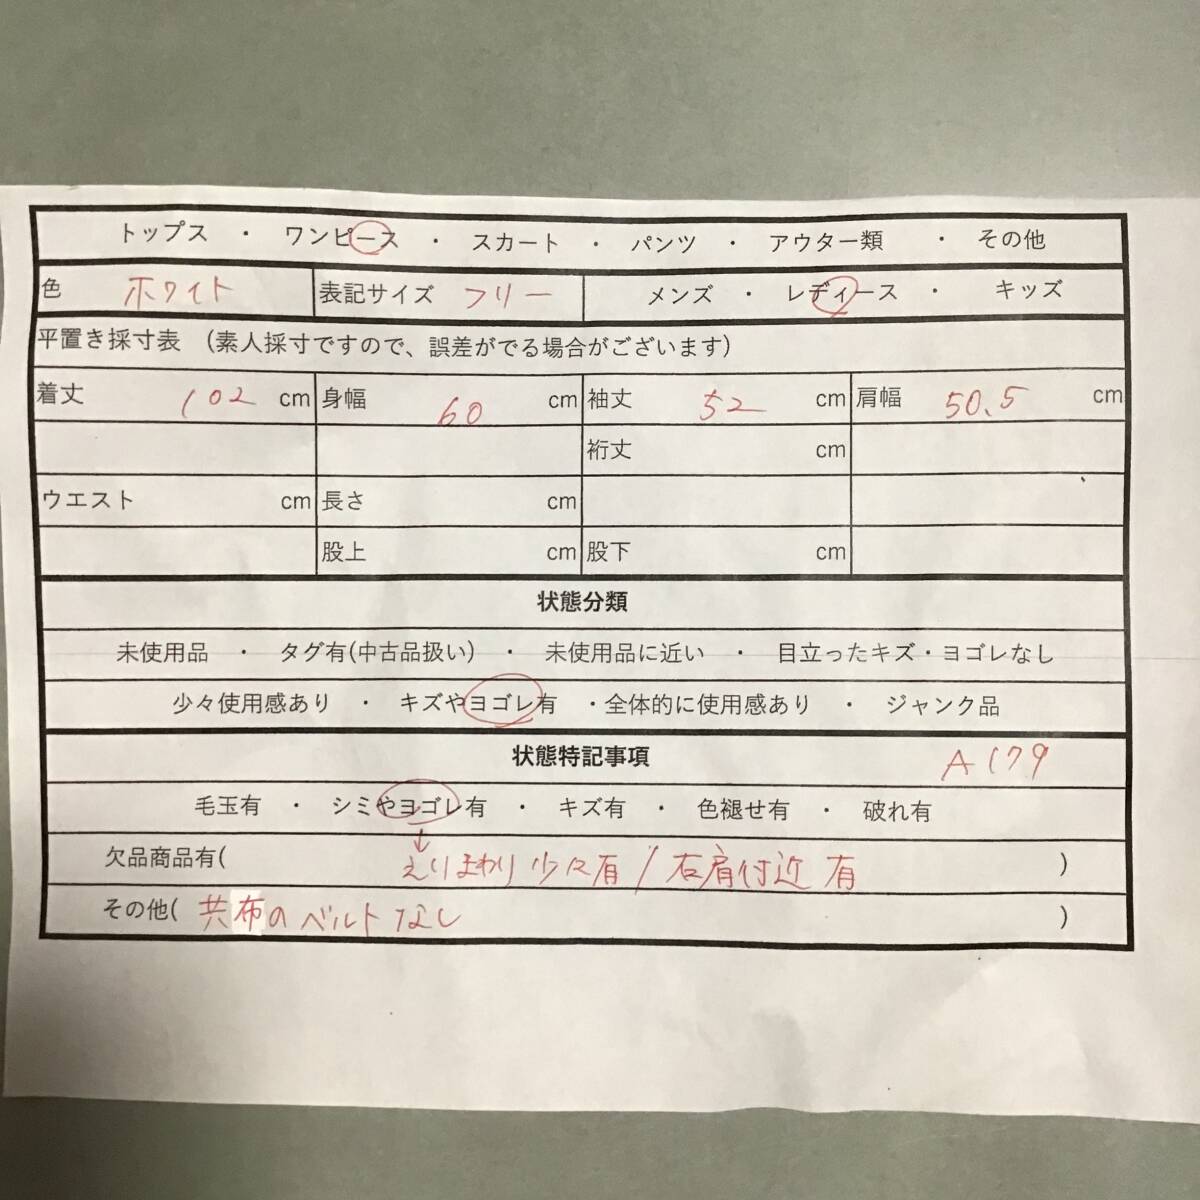 トップス ・ ワンピース ・ スカート ・ パンツ ・ アウター類 ・ その他
色 ホワイト 表記サイズ フリー メンズ ・ レディース ・ キッズ
平置き採寸表 (素人採寸ですので、誤差がでる場合がございます)
着丈 102 cm 身幅 60 cm 袖丈 52 cm 肩幅 50.5 cm
裄丈 cm
ウエスト cm 長さ cm
股上 cm 股下 cm
状態分類
未使用品 ・ タグ有(中古品扱い) ・ 未使用品に近い ・ 目立ったキズ・ヨゴレなし
少々使用感あり ・ キズやヨゴレ有 ・全体的に使用感あり ・ ジャンク品
状態特記事項 A179
毛玉有 ・ シミやヨゴレ有 ・ キズ有 ・ 色褪せ有 ・ 破れ有
欠品商品有( ↓えりまわり 少々有 / 右肩付近 有 )
その他( 共布のベルトなし )